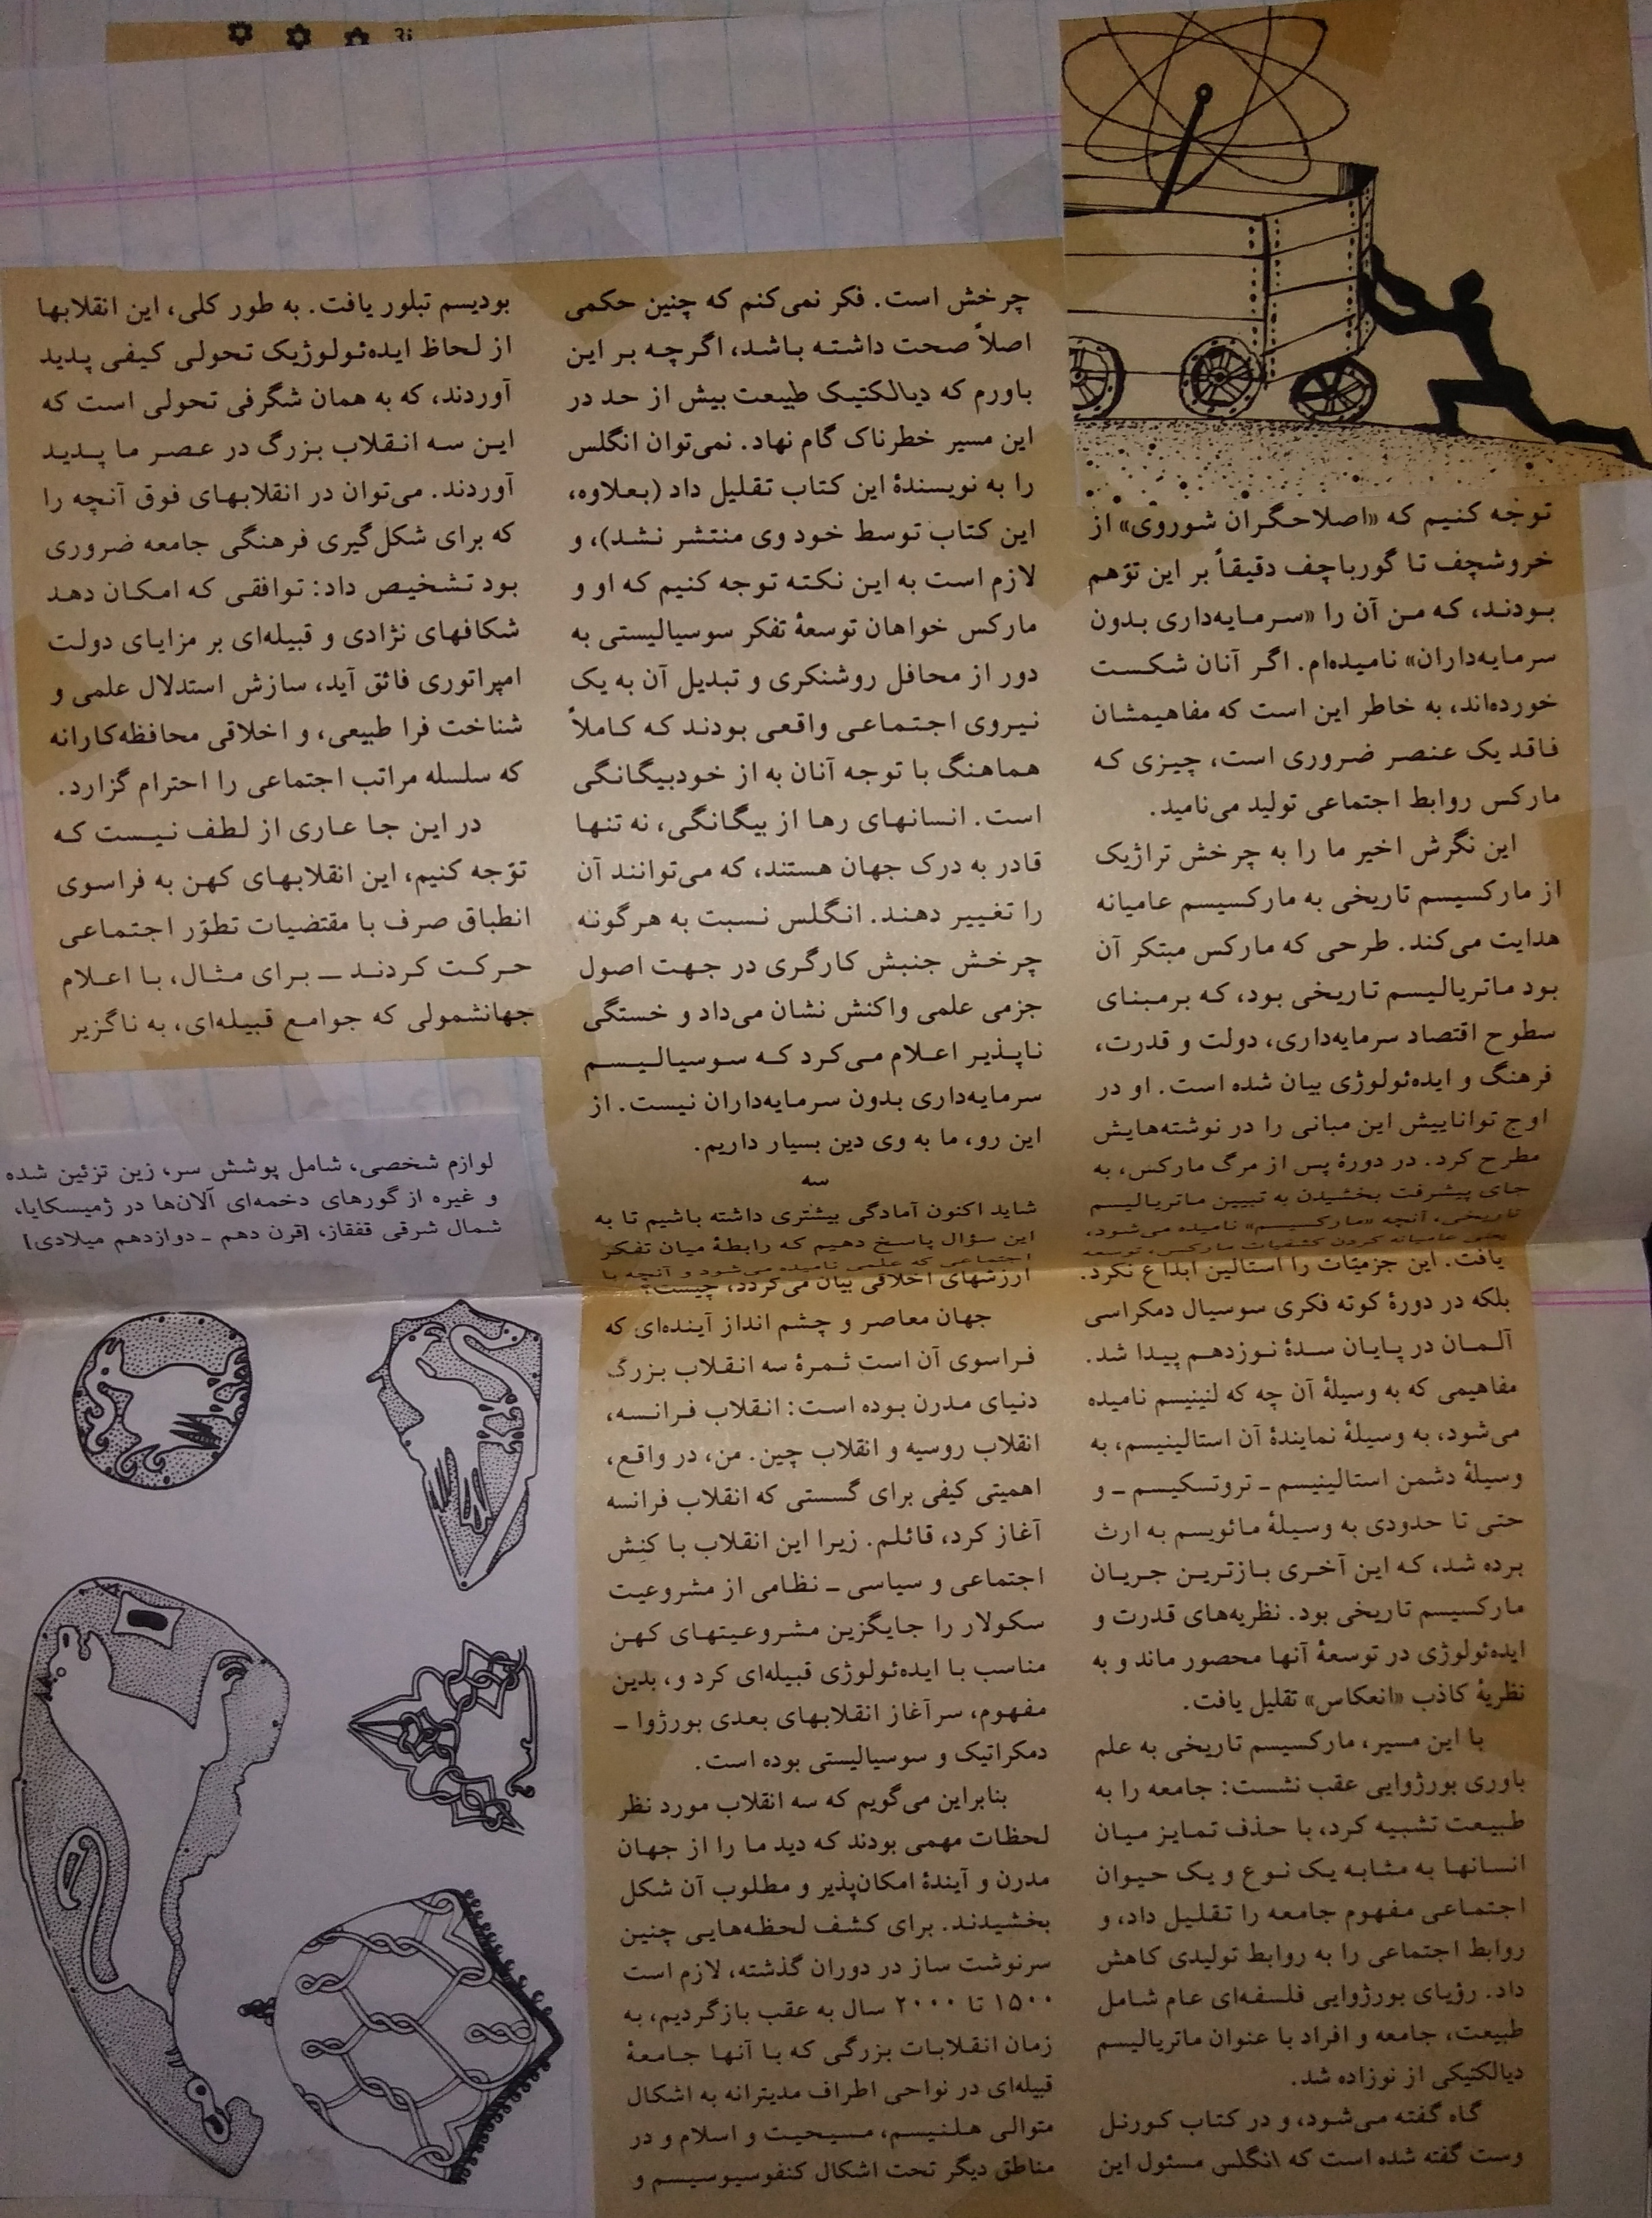 توجه کنیم که «اصلاحگران شوروی» از
خروشچف تا گورباچف دقیقاً بر این توّهم
بودند، که من آن را «سرمایه‌داری بدون
سرمایه‌داران» نامیده‌ام. اگر آنان شکست
خورده‌اند، به خاطر این است که مفاهیمشان
فاقد یک عنصر ضروری است، چیزی که
مارکس روابط اجتماعی تولید می‌نامید.
این نگرش اخیر ما را به چرخش تراژیک
از مارکسیسم تاریخی به مارکسیسم عامیانه
هدایت می‌کند. طرحی که مارکس مبتکر آن
بود ماتریالیسم تاریخی بود، که برمبنای
سطوح اقتصاد سرمایه‌داری، دولت و قدرت،
فرهنگ و ایده‌ئولوژی بیان شده است. او در
اوج تواناییش این مبانی را در نوشته‌هایش
مطرح کرد. در دورهٔ پس از مرگ مارکس، به
جای پیشرفت بخشیدن به تبیین ماتریالیسم
تاریخی، آنچه «مارکسیسم» نامیده می‌شود،
یعنی عامیانه کردن کشفیات مارکس، توسعه
یافت. این جزمیّات را استالین ابداع نکرد.
بلکه در دورهٔ کوته فکری سوسیال دمکراسی
آلمان در پایان سدهٔ نوزدهم پیدا شد.
مفاهیمی که به وسیلهٔ آن چه که لنینیسم نامیده
می‌شود، به وسیلهٔ نمایندهٔ آن استالینیسم، به
وسیلهٔ دشمن استالینیسم ـ تروتسکیسم ـ و
حتی تا حدودی به وسیلهٔ مائویسم به ارث
برده شد، که این آخری بازترین جریان
مارکسیسم تاریخی بود. نظریه‌های قدرت و
ایده‌ئولوژی در توسعهٔ آنها محصور ماند و به
نظریهٔ کاذب «انعکاس» تقلیل یافت.
با این مسیر، مارکسیسم تاریخی به علم
باوری بورژوایی عقب نشست: جامعه را به
طبیعت تشبیه کرد، با حذف تمایز میان
انسانها به مثابه یک نوع و یک حیوان
اجتماعی مفهوم جامعه را تقلیل داد، و
روابط اجتماعی را به روابط تولیدی کاهش
داد. رؤیای بورژوایی فلسفه‌ای عام شامل
طبیعت، جامعه و افراد با عنوان ماتریالیسم
دیالکتیکی از نوزاده شد.
گاه گفته می‌شود، و در کتاب کورنل
وست گفته شده است که انگلس مسئول این
چرخش است. فکر نمی‌کنم که چنین حکمی
اصلاً صحت داشته باشد، اگرچه بر این
باورم که دیالکتیک طبیعت بیش از حد در
این مسیر خطرناک گام نهاد. نمی‌توان انگلس
را به نویسندهٔ این کتاب تقلیل داد (بعلاوه،
این کتاب توسط خود وی منتشر نشد)، و
لازم است به این نکته توجه کنیم که او و
مارکس خواهان توسعهٔ تفکر سوسیالیستی به
دور از محافل روشنکری و تبدیل آن به یک
نیروی اجتماعی واقعی بودند که کاملاً
هماهنگ با توجه آنان به از خودبیگانگی
است. انسانهای رها از بیگانگی، نه تنها
قادر به درک جهان هستند، که می‌توانند آن
را تغییر دهند. انگلس نسبت به هرگونه
چرخش جنبش کارگری در جهت اصول
جزمی علمی واکنش نشان می‌داد و خستگی
ناپذیر اعلام می‌کرد که سوسیالیسم
سرمایه‌داری بدون سرمایه‌داران نیست. از
این رو، ما به وی دین بسیار داریم.
سه
شاید اکنون آمادگی بیشتری داشته باشیم تا به
این سؤال پاسخ دهیم که رابطهٔ میان تفکر
اجتماعی که علمی نامیده می‌شود و آنچه با
ارزشهای اخلاقی بیان می‌گردد، چیست؟
جهان معاصر و چشم انداز آینده‌ای که
فراسوی آن است ثمرهٔ سه انقلاب بزرگ
دنیای مدرن بوده است: انقلاب فرانسه،
انقلاب روسیه و انقلاب چین. من، در واقع،
اهمیتی کیفی برای گسستی که انقلاب فرانسه
آغاز کرد، قائلم. زیرا این انقلاب با کنش
اجتماعی و سیاسی ـ نظامی از مشروعیت
سکولار را جایگزین مشروعیتهای کهن
مناسب با ایده‌ئولوژی قبیله‌ای کرد و، بدین
مفهوم، سرآغاز انقلابهای بعدی بورژوا ـ
دمکراتیک و سوسیالیستی بوده است.
بنابراین می‌گویم که سه انقلاب مورد نظر
لحظات مهمی بودند که دید ما را از جهان
مدرن و آیندهٔ امکان‌پذیر و مطلوب آن شکل
بخشیدند. برای کشف لحظه‌هایی چنین
سرنوشت ساز در دوران گذشته، لازم است
۱۵۰۰ تا ۲۰۰۰ سال به عقب بازگردیم، به
زمان انقلابات بزرگی که با آنها جامعهٔ
قبیله‌ای در نواحی اطراف مدیترانه به اشکال
متوالی هلنیسم، مسیحیت و اسلام و در
مناطق دیگر تحت اشکال کنفوسیوسیسم و
بودیسم تبلور یافت. به طور کلی، این انقلابها
از لحاظ ایده‌ئولوژیک تحولی کیفی پدید
آوردند، که به همان شگرفی تحولی است که
این سه انقلاب بزرگ در عصر ما پدید
آوردند. می‌توان در انقلابهای فوق آنچه را
که برای شکل‌گیری فرهنگی جامعه ضروری
بود تشخیص داد: توافقی که امکان دهد
شکافهای نژادی و قبیله‌ای بر مزایای دولت
امپراتوری فائق آید، سازش استدلال علمی و
شناخت فرا طبیعی، و اخلاقی محافظه‌کارانه
که سلسله مراتب اجتماعی را احترام گزارد.
در این جا عاری از لطف نیست که
توّجه کنیم، این انقلابهای کهن به فراسوی
انطباق صرف با مقتضیات تطوّر اجتماعی
حرکت کردند ـ برای مثال، با اعلام
جهانشمولی که جوامع قبیله‌ای، به ناگزیر
لوازم شخصی، شامل پوشش سر، زین تزئین شده
و غیره از گورهای دخمه‌ای آلان‌ها در ژمیسکایا،
شمال شرقی قفقاز، [قرن دهم ـ دوازدهم میلادی]